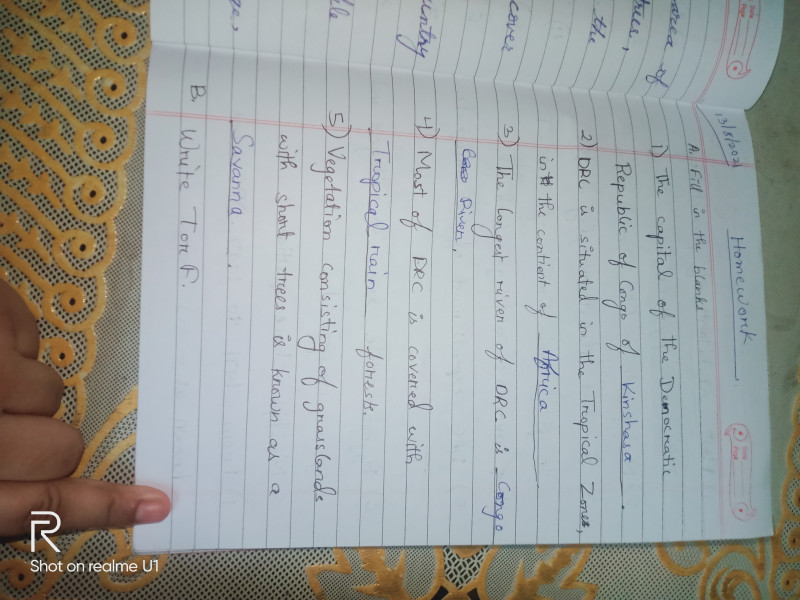 untry
cover
the
area of
13/8/2021
Homework
A. Fill in the blanks
1) The capital of the Democratic
Republic of Congo of Kinshasa.
2) DRC is situated in the Tropical Zones,
in the contient of Africa.
3) The longest river of DRC is Congo
River.
4) Most of DRC is covered with
Tropical rain forests.
5) Vegetation consisting of grasslands
with short trees is known as a
Savanna.
B. Write T or F.
R
Shot on realme U1